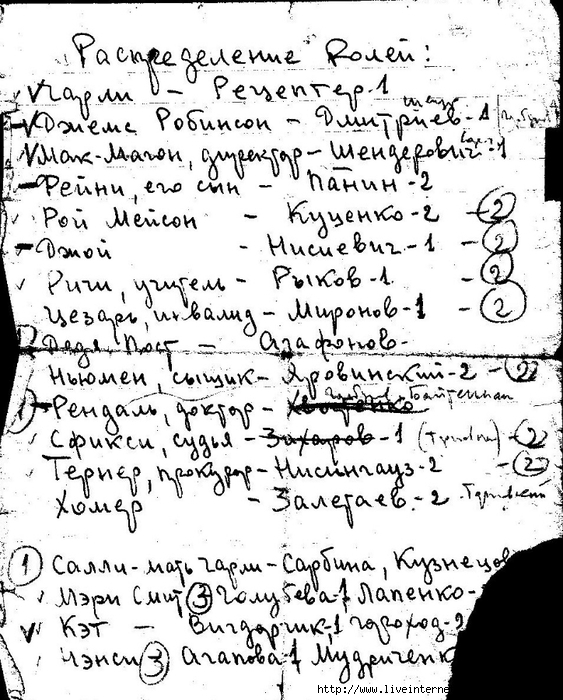 Распределение ролей:
Чарли - Рецептер-1
Джемс Робинсон - Дмитриев-1
Мак-Магон, директор - Шендерович-1
Рейни, его сын - Панин-2
Рой Мейсон - Куценко-2 - 2
Джой - Нисневич-1 - 2
Ричи, учитель - Рыков-1 - 2
Цезарь, инвалид - Миронов-1 - 2
Дядя Пост - Агафонов-
Ньюмен, сыщик - Яровинский-2 - 2
1 Рендаль, доктор -
Сфикси, судья - Захаров-1 - 2
Тернер, прокурор - Нисингауз-2 - 2
Хомер - Залетаев-2
1 Салли-мать Чарли-Сарбина, Кузнецов
Мэри Смит 3 Голубева-1 Лапенко-
Кэт - Вигдорчик,1 Гороход-2
Чэнси 3 Агапова-1 Мудриченк
http://www.liveinterne